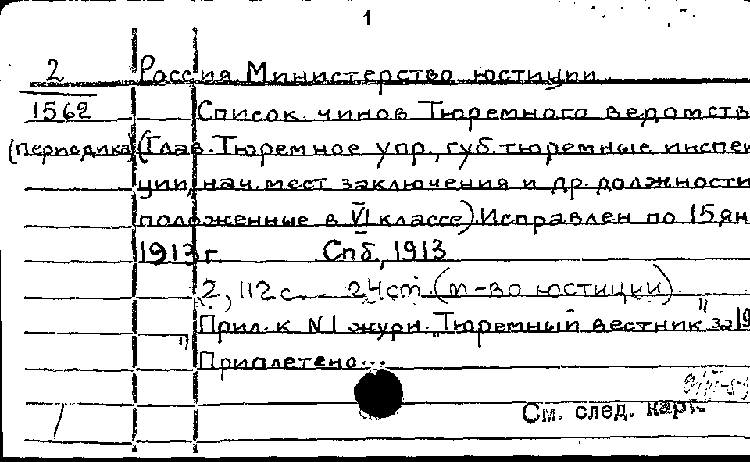 1
2 Россия Министерство юстиции
1562 Список чинов Тюремного ведомств
(периодика) (Глав. Тюремное упр., губ. тюремные инспек
ции, нач. мест заключения и др. должности
положенные в VI классе). Исправлен по 15 ян
1913 г. Спб, 1913
2, 112 с. 24 cm. (т-во юстиции)
Прил. к N 1 журн. "Тюремный вестник" за 19
1) Приплетено...
См. след. карт.